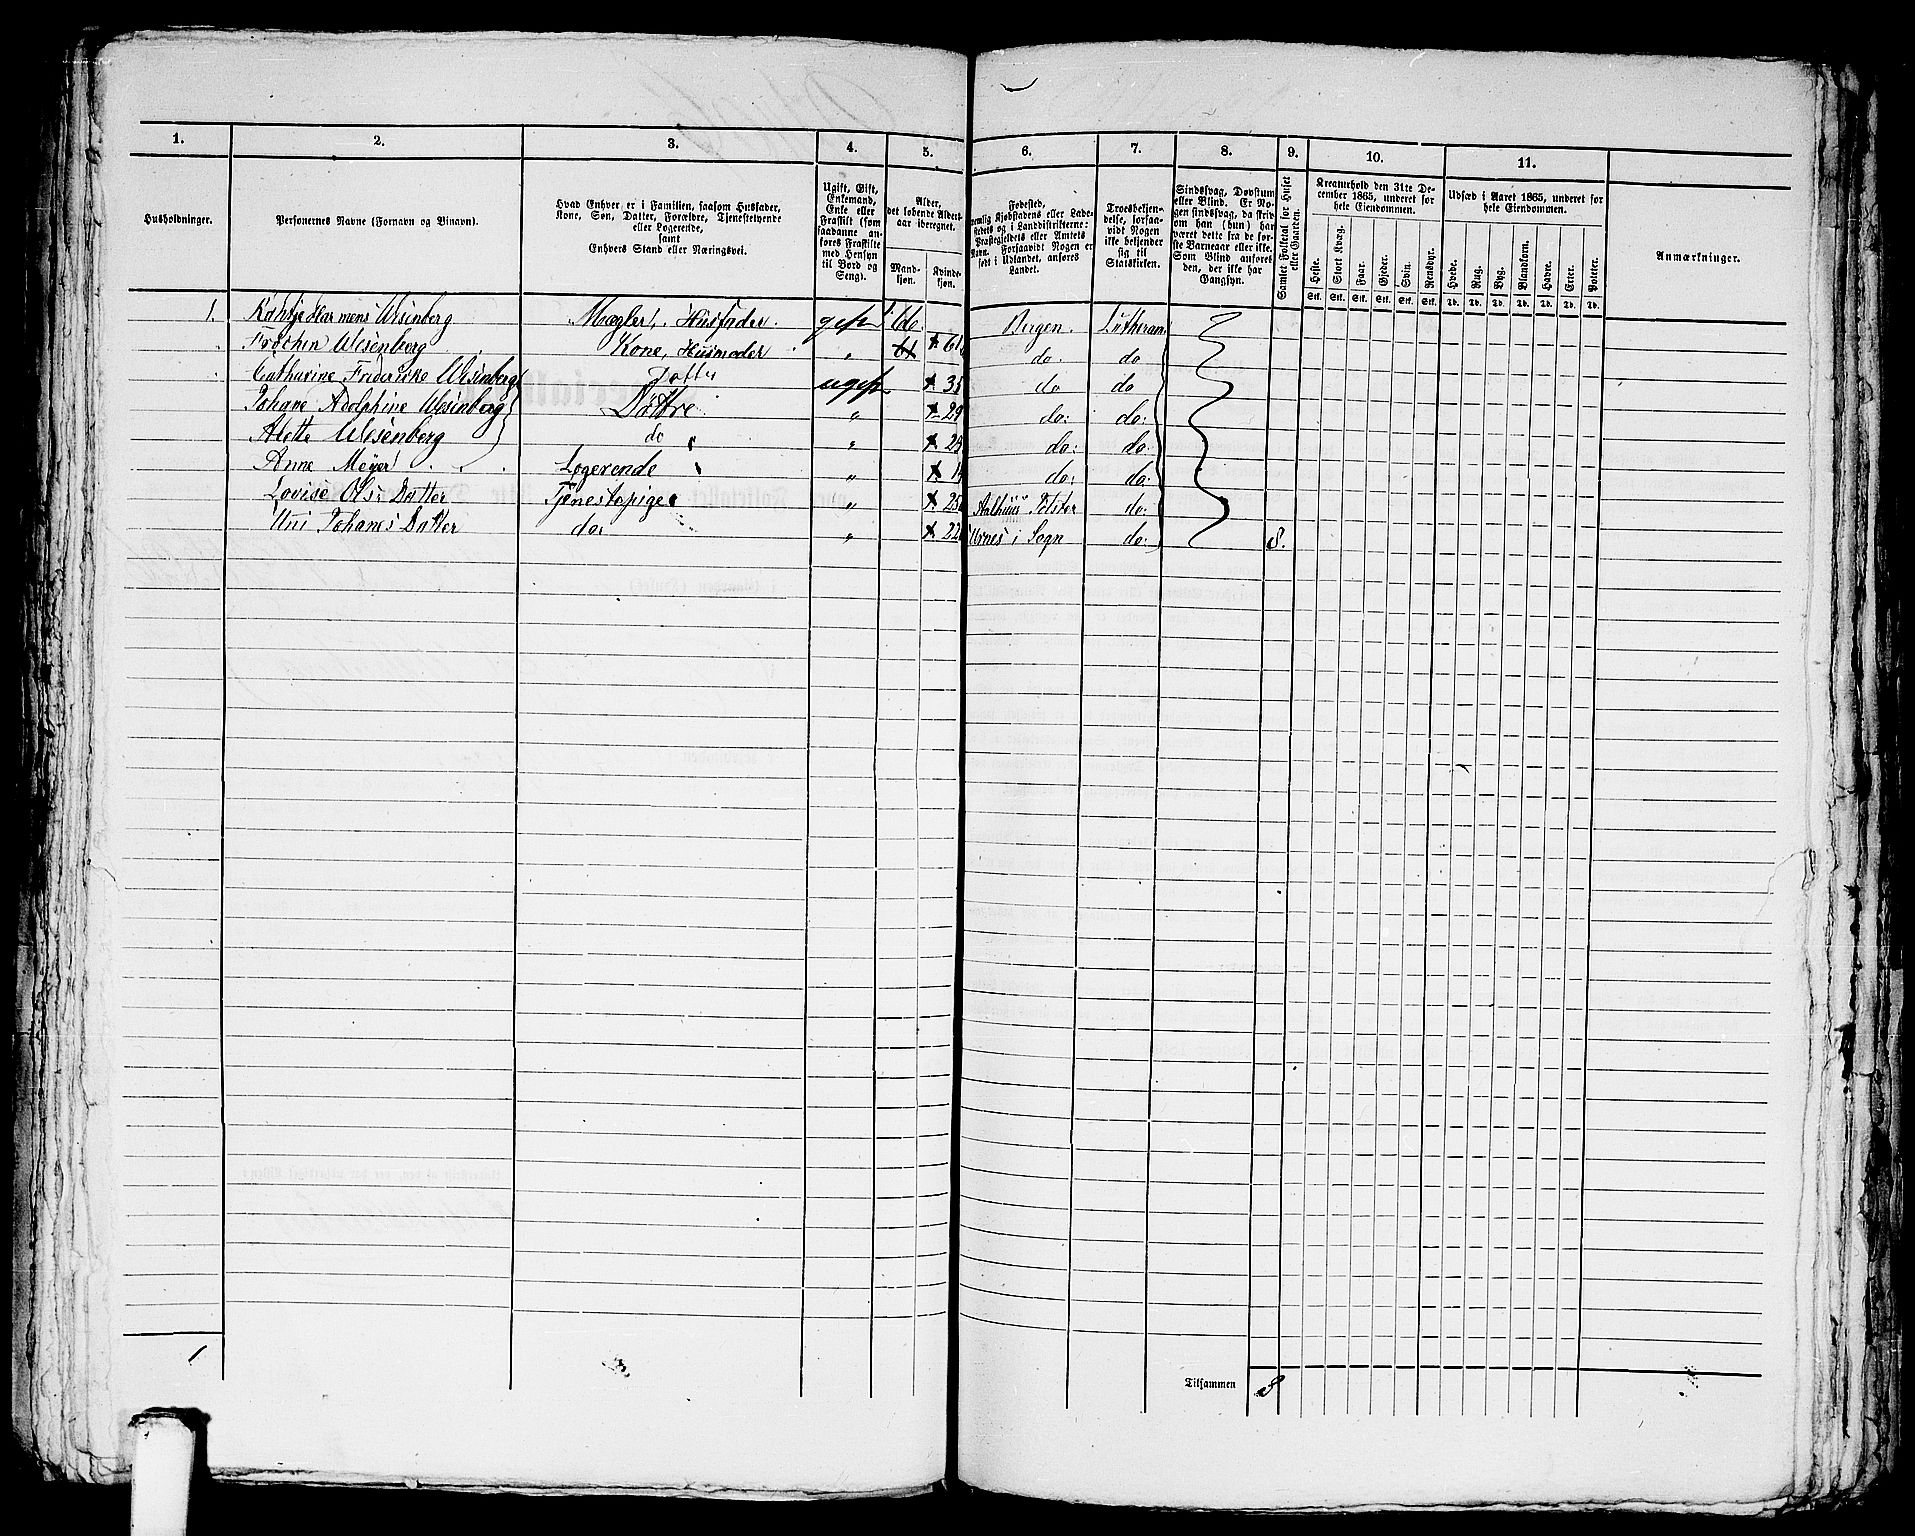 1. 2. 3. 4. 5. 6. 7. 8. 9. 10. 11.
Husholdninger.
Personernes Navne (Fornavn og Binavn).
Hvad Enhver er i Familien, saasom Husfader,
Kone, Søn, Datter, Forældre, Tjenestetyende
eller Logerende,
samt
Enhvers Stand eller Næringsvei.
Ugift, Gift,
Enkemand,
Enke eller
Fraskilt (som
saadanne an-
føres Fraskilte
med Hensyn
til Bord og
Seng).
Alder,
det løbende Alders-
aar iberegnet.
Mand-
kjøn.
Kvinde-
kjøn.
Fødested,
nemlig Kjøbstadens eller Lade-
stedets og i Landdistrikterne:
Præstegjeldets eller Amtets
Navn. Forsaavidt Nogen er
født i Udlandet, anføres
Landet.
Troesbekjen-
delse, forsaa-
vidt Nogen
ikke bekjender
sig til
Statskirken.
Sindssvag, Døvstum
eller Blind. Er No-
gen sindssvag, da skriv
om han (hun) har
været dette fra de før-
ste Barneaar eller ikke.
Som Blind anføres
den, der ikke har
Gangsyn.
Samlet Folketal for Huset
eller Gaarden.
Kreaturhold den 31te De-
cember 1865, underet for
hele Eiendommen.
Heste. Stort Kvæg. Faar. Gjeder. Svin. Rensdyr.
Stk. Stk. Stk. Stk. Stk. Stk.
Udsæd i Aaret 1865, underet for
hele Eiendommen.
Hvede. Rug. Byg. Blandkorn. Havre. Erter. Poteter.
Td. Td. Td. Td. Td. Td. Td.
Anmærkninger.
1. Harmens Wesenberg Mægler, Husfader gift 60 Bergen. Lutheran
Wesenberg Kone, Husmoder " 61 do do
Catharine Frederikke Wesenberg Datter ugift 35 do do
Johane Adolphine Wesenberg Døttre " 29 do: do:
Wesenberg do " do: do:
Anne Meyer Logerende " do: do:
Lovise Ols Datter Tjenestepige " 25 do:
Johanes Datter do: " 22 Urnes i Sogn do: 8.
1
Tilsammen 8